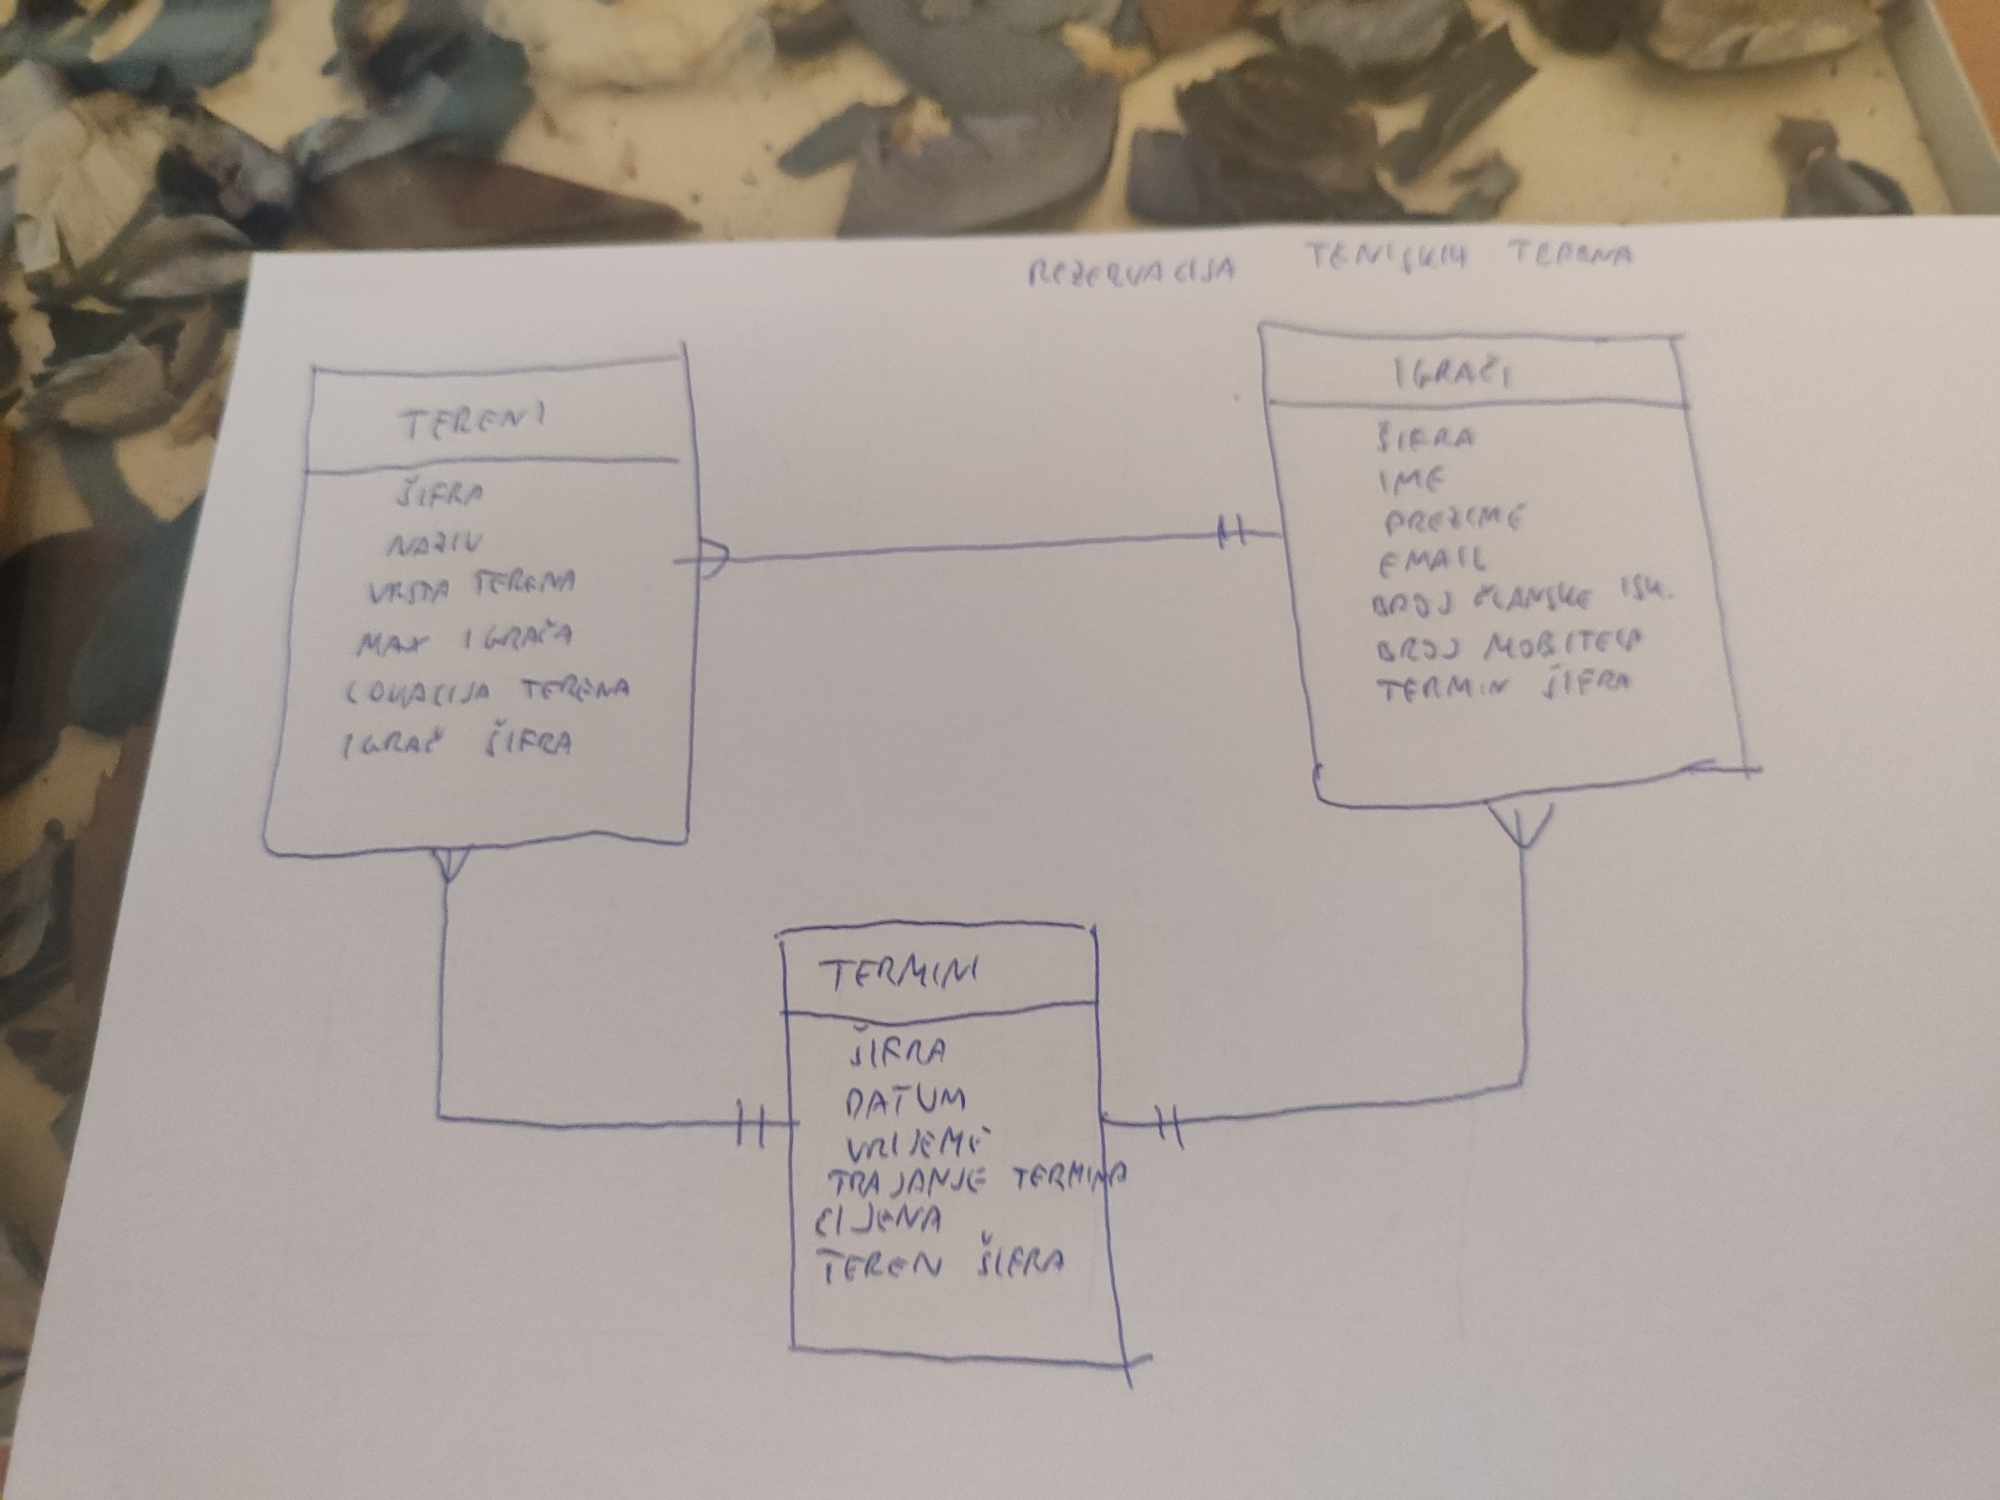 REZERVACIJA TENISKIH TERENA
TERENI
ŠIFRA
NAZIV
VRSTA TERENA
MAX IGRAČA
LOKACIJA TERENA
IGRAČ ŠIFRA
IGRAČI
ŠIFRA
IME
PREZIME
EMAIL
BROJ ČLANSKE ISK.
BROJ MOBITELA
TERMIN ŠIFRA
TERMINI
ŠIFRA
DATUM
VRIJEME
TRAJANJE TERMINA
CIJENA
TEREN ŠIFRA